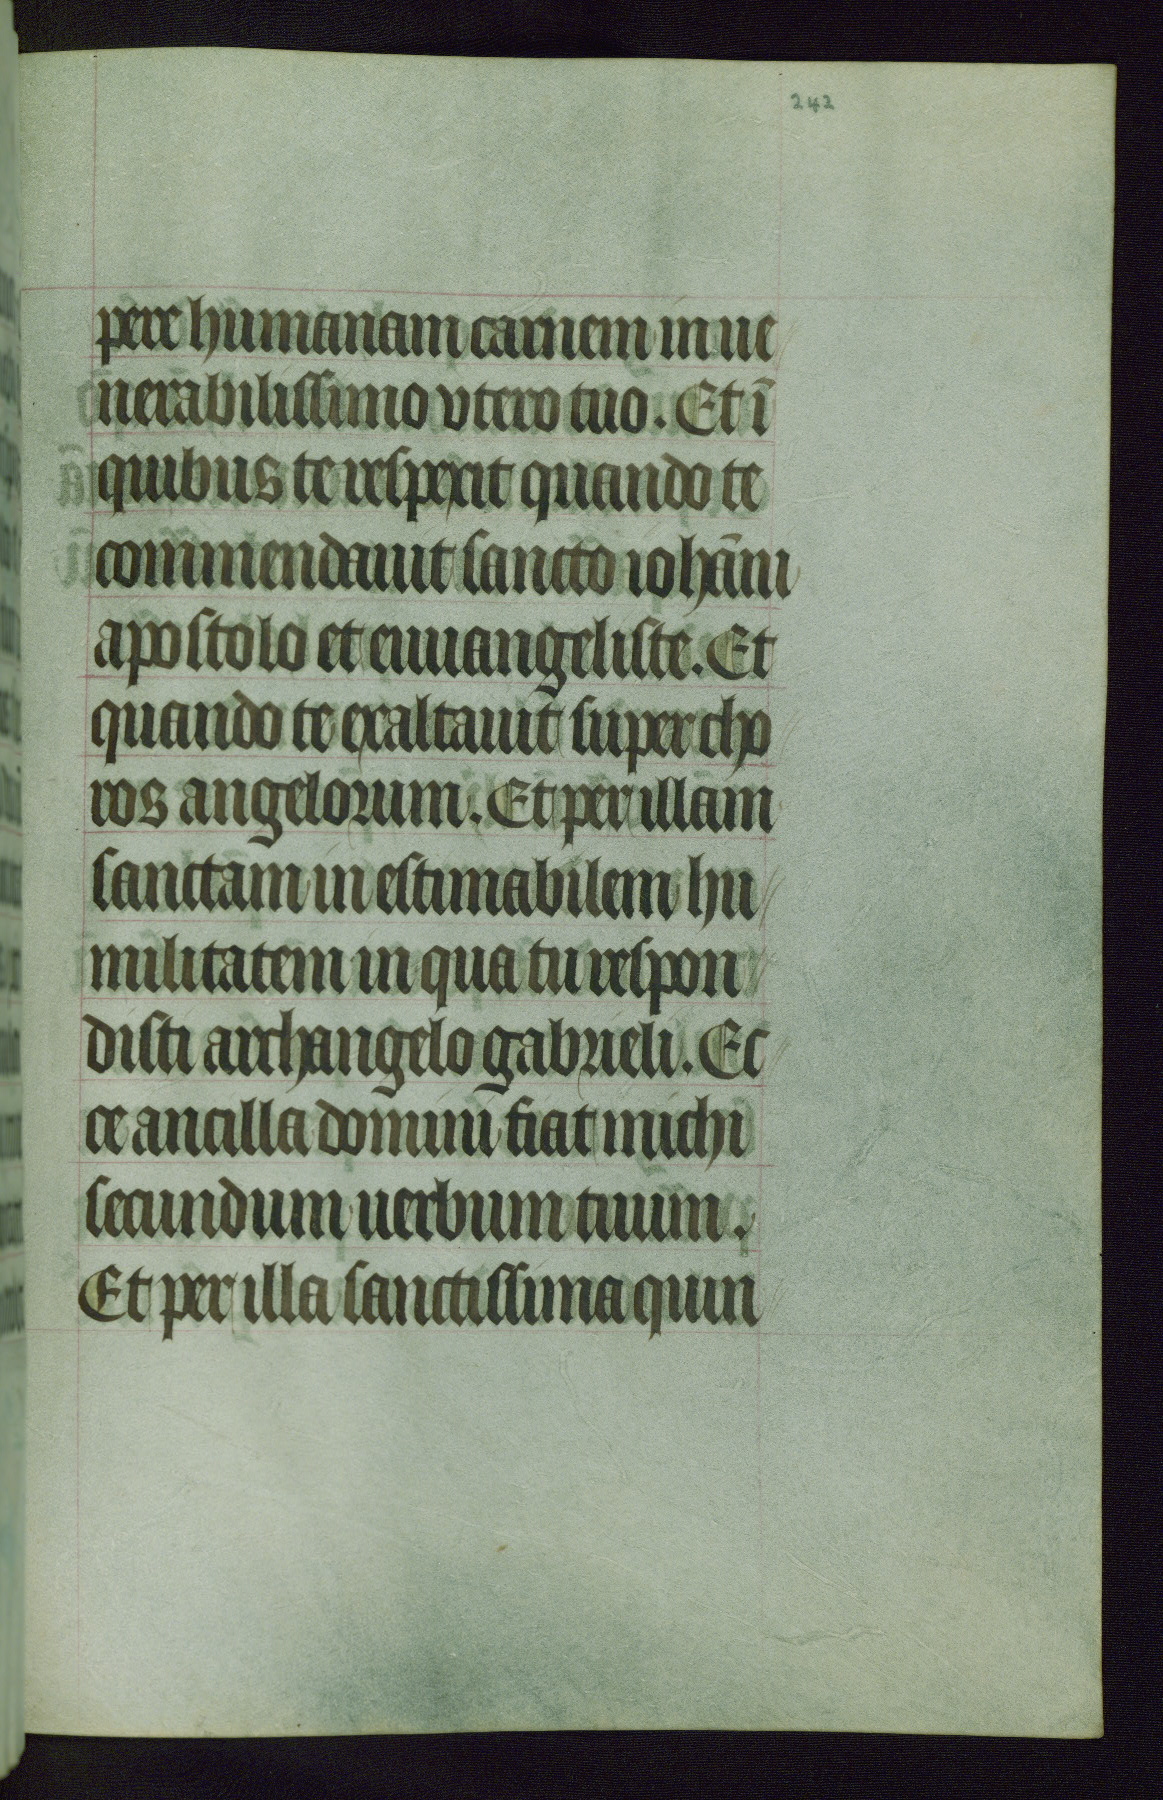 242
pere humanam carnem in ue
nerabilissimo vtero tuo. Et ī
quibus te respexit quando te
commendauit sancto iohāni
apostolo et euuangeliste. Et
quando te exaltauit super cho
ros angelorum. Et per illam
sanctam in estimabilem hu
militatem in qua tu respon
disti archangelo gabrieli. Ec
ce ancilla domini fiat michi
secundum uerbum tuum.
Et per illa sanctissima quin